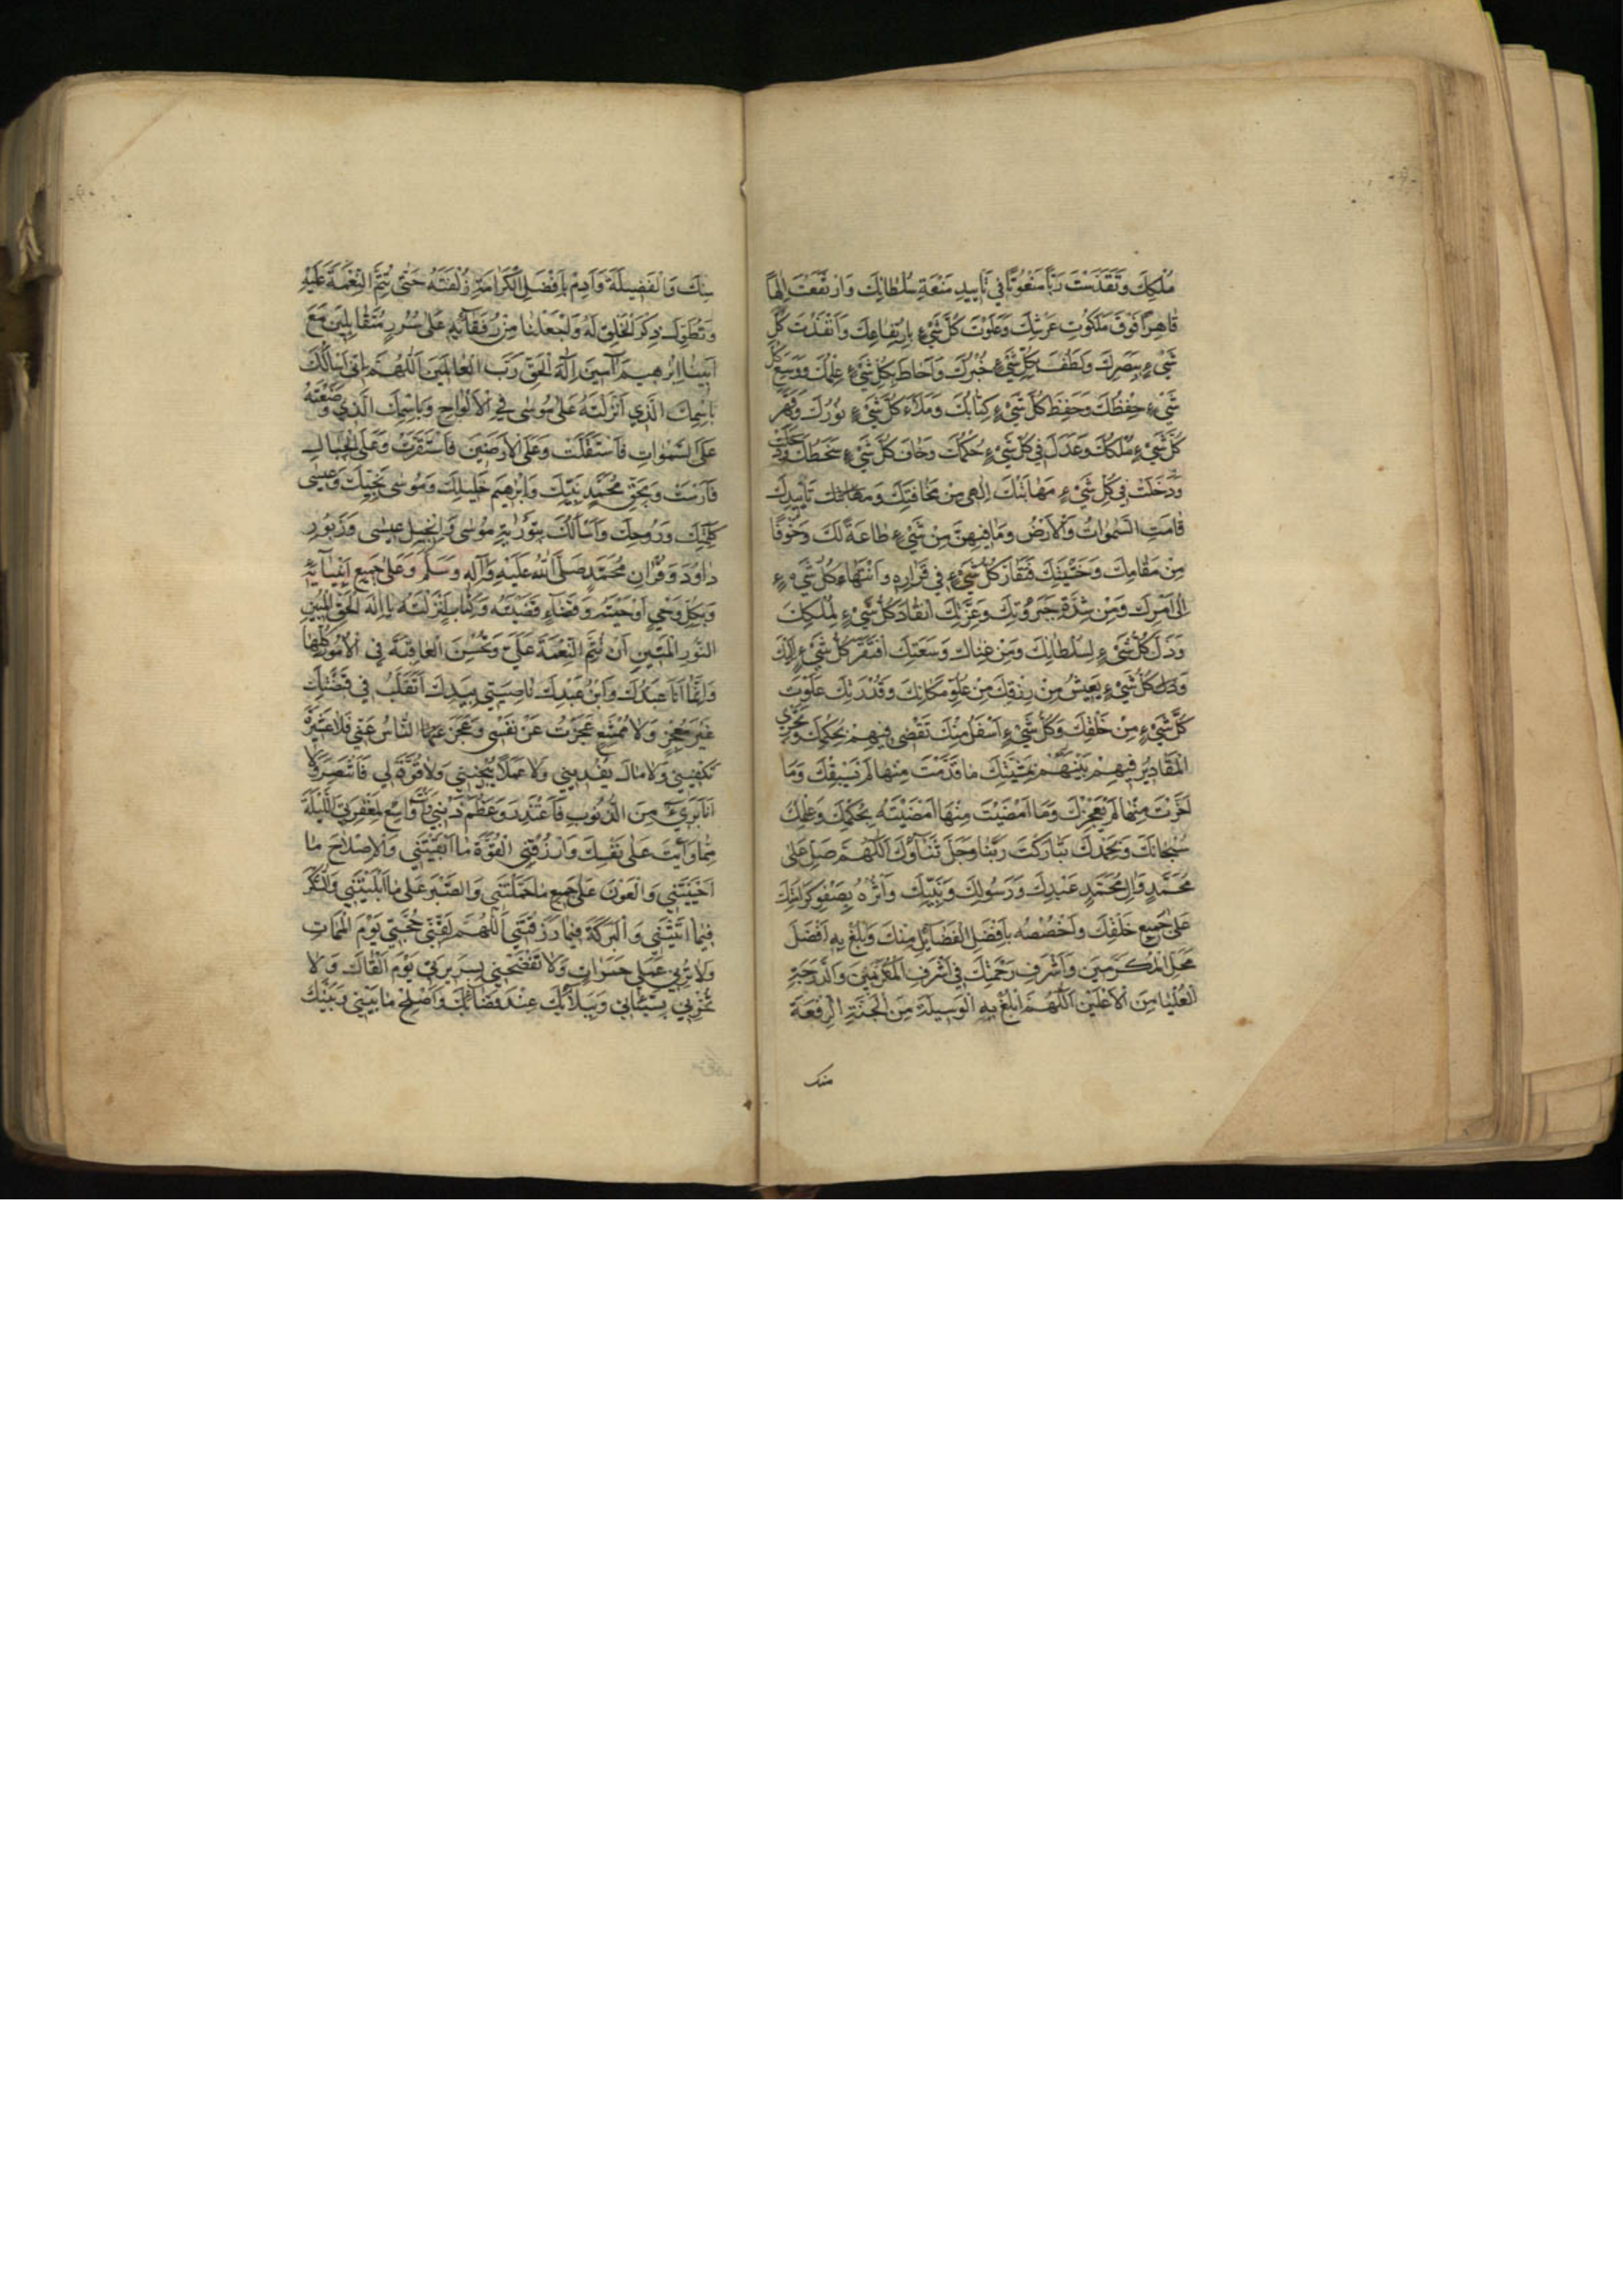 مُلْكِكَ وَتَقَدَّسْتَ رَبًّا مَنْعُوتًا فِي تَأْيِيدِ مَنْعَةِ سُلْطَانِكَ وَارْتَفَعْتَ إِلٰهًا
قَاهِرًا فَوْقَ مَلَكُوتِ عَرْشِكَ وَعَلَوْتَ كُلَّ شَيْءٍ بِارْتِفَاعِكَ وَأَنْفَذْتَ كُلَّ
شَيْءٍ بَصَرَكَ وَلَطُفَ بِكُلِّ شَيْءٍ خُبْرُكَ وَأَحَاطَ بِكُلِّ شَيْءٍ عِلْمُكَ وَوَسِعَ كُلَّ
شَيْءٍ حِفْظُكَ وَحَفِظَ كُلَّ شَيْءٍ كِتَابُكَ وَمَلَأَ كُلَّ شَيْءٍ نُورُكَ وَقَهَرَ
كُلَّ شَيْءٍ مُلْكُكَ وَعَدَلَ فِي كُلِّ شَيْءٍ حُكْمُكَ وَخَافَ كُلُّ شَيْءٍ سَخَطَكَ
وَدَخَلَتْ فِي كُلِّ شَيْءٍ مَهَابَتُكَ إِلٰهِي مِنْ مَخَافَتِكَ وَ تَأْيِيدِكَ
قَامَتِ السَّمٰوَاتُ وَالْأَرْضُ وَمَا فِيهِنَّ مِنْ شَيْءٍ طَاعَةً لَكَ وَخَوْفًا
مِنْ مَقَامِكَ وَخَشْيَتِكَ فَتَقَارَّ كُلُّ شَيْءٍ فِي قَرَارِهِ وَانْتَهَى كُلُّ شَيْءٍ
إِلَى أَمْرِكَ وَمِنْ شِدَّةِ جَبَرُوتِكَ وَعِزَّتِكَ انْقَادَ كُلُّ شَيْءٍ لِمُلْكِكَ
وَذَلَّ كُلُّ شَيْءٍ لِسُلْطَانِكَ وَمِنْ غِنَاكَ وَسَعَتِكَ افْتَقَرَ كُلُّ شَيْءٍ إِلَيْكَ
كُلُّ شَيْءٍ يَعِيشُ مِنْ رِزْقِكَ مِنْ عُلُوِّ مَكَانِكَ وَقُدْرَتِكَ عَلَوْتَ
كُلَّ شَيْءٍ مِنْ خَلْقِكَ وَكُلُّ شَيْءٍ أَسْفَلُ مِنْكَ تَقْضِي فِيهِمْ بِحُكْمِكَ وَتَجْرِي
الْمَقَادِيرُ فِيهِمْ بَيْنَهُمْ بِمَشِيَّتِكَ مَا قَدَّمْتَ مِنْهَا لَمْ يَسْبِقْكَ وَمَا
أَخَّرْتَ مِنْهَا لَمْ يُعْجِزْكَ وَمَا أَمْضَيْتَ مِنْهَا أَمْضَيْتَهُ بِحُكْمِكَ وَعِلْمِكَ
سُبْحَانَكَ وَبِحَمْدِكَ تَبَارَكْتَ رَبَّنَا وَجَلَّ ثَنَاؤُكَ اللّٰهُمَّ صَلِّ عَلَى
مُحَمَّدٍ وَآلِ مُحَمَّدٍ عَبْدِكَ وَرَسُولِكَ وَنَبِيِّكَ وَآثِرْهُ بِصَفْوِ كَرَامَتِكَ
عَلَى جَمِيعِ خَلْقِكَ وَاخْصُصْهُ بِأَفْضَلِ الْفَضَائِلِ مِنْكَ وَبَلِّغْ بِهِ أَفْضَلَ
مَحَلِّ الْمُكَرَّمِينَ وَأَشْرَفِ رَحْمَتِكَ فِي أَشْرَفِ الْمُقَرَّبِينَ وَالدَّرَجَةِ
الْعُلْيَا مِنَ الْأَعْلَيْنَ اللّٰهُمَّ أَبْلِغْ بِهِ الْوَسِيلَةَ مِنَ الْجَنَّةِ الرِّفْعَةَ
منك
مِنْكَ وَالْفَضِيلَةَ وَأَدِمْ بِأَفْضَلِ الْكَرَامَةِ زُلْفَتَهُ حَتَّى تُتِمَّ النِّعْمَةَ عَلَيْهِ
وَتُطَوِّلَ ذِكْرَ الْخَلَائِقِ لَهُ وَاجْعَلْنَا مِنْ رُفَقَائِهِ عَلَى سُرُرٍ مُتَقَابِلِينَ مَعَ
أَبِينَا إِبْرٰهِيمَ آمِينَ إِلٰهَ الْحَقِّ رَبَّ الْعَالَمِينَ اللّٰهُمَّ إِنِّي أَسْأَلُكَ
بِاسْمِكَ الَّذِي أَنْزَلْتَهُ عَلَى مُوسَى فِي الْأَلْوَاحِ وَبِاسْمِكَ الَّذِي وَضَعْتَهُ
عَلَى السَّمٰوَاتِ فَاسْتَقَلَّتْ وَعَلَى الْأَرَضِينَ فَاسْتَقَرَّتْ وَعَلَى الْجِبَالِ
فَأَرْسَتْ وَبِحَقِّ مُحَمَّدٍ نَبِيِّكَ وَإِبْرٰهِيمَ خَلِيلِكَ وَمُوسَى نَجِيِّكَ وَعِيسَى
كَلِمَتِكَ وَرُوحِكَ وَأَسْأَلُكَ بِتَوْرَاةِ مُوسَى وَإِنْجِيلِ عِيسَى وَزَبُورِ
دَاوُدَ وَقُرْآنِ مُحَمَّدٍ صَلَّى اللّٰهُ عَلَيْهِ وَآلِهِ وَسَلَّمَ وَعَلَى جَمِيعِ أَنْبِيَائِهِ
وَبِكُلِّ وَحْيٍ أَوْحَيْتَهُ وَقَضَاءٍ قَضَيْتَهُ وَكِتَابٍ أَنْزَلْتَهُ يَا إِلٰهَ الْحَقِّ الْمُبِينِ
النُّورِ الْمُبِينِ أَنْ تُتِمَّ النِّعْمَةَ عَلَيَّ وَتُحْسِنَ الْعَاقِبَةَ فِي الْأُمُورِ كُلِّهَا
وَإِنَّمَا أَنَا عَبْدُكَ وَابْنُ عَبْدِكَ نَاصِيَتِي بِيَدِكَ أَتَقَلَّبُ فِي قَبْضَتِكَ
غَيْرَ مُعْجِزٍ وَلَا مُمْتَنِعٍ عَجَزْتُ عَنْ نَفْسِي وَعَجَزَ النَّاسُ عَنِّي فَلَا عَشِيرَةَ
تَكْفِينِي وَلَا مَالَ يَفْدِينِي وَلَا عَمَلًا يُنْجِينِي وَلَا قُوَّةَ لِي فَأَنْتَصِرَ وَلَا
أَنَا بَرِيءٌ مِنَ الذُّنُوبِ فَأَعْتَذِرَ وَعَظُمَ ذَنْبِي اللَّيْلَةَ
بِمَا وَأَيْتَ عَلَى نَفْسِكَ وَارْزُقْنِي الْقُوَّةَ مَا أَبْقَيْتَنِي وَالْإِصْلَاحَ مَا
أَحْيَيْتَنِي وَالْعَوْنَ عَلَى جَمِيعِ مَا حَمَّلْتَنِي وَالصَّبْرَ عَلَى مَا أَبْلَيْتَنِي وَالشُّكْرَ
فِيمَا آتَيْتَنِي وَالْبَرَكَةَ فِيمَا رَزَقْتَنِي اللّٰهُمَّ لَقِّنِّي حُجَّتِي يَوْمَ الْمَمَاتِ
وَلَا تُرِنِي عَمَلِي حَسَرَاتٍ وَلَا تَفْضَحْنِي بِسَرِيرَتِي يَوْمَ أَلْقَاكَ وَلَا
تُخْزِنِي بِسَيِّئَاتِي وَبِبَلَائِكَ عِنْدَ قَضَائِكَ وَأَصْلِحْ مَا بَيْنِي وَبَيْنَكَ